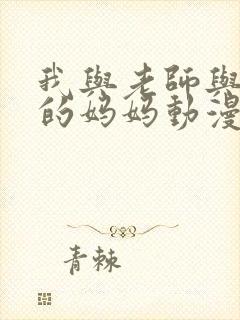 我與老師與
的妈妈動漫
青棘